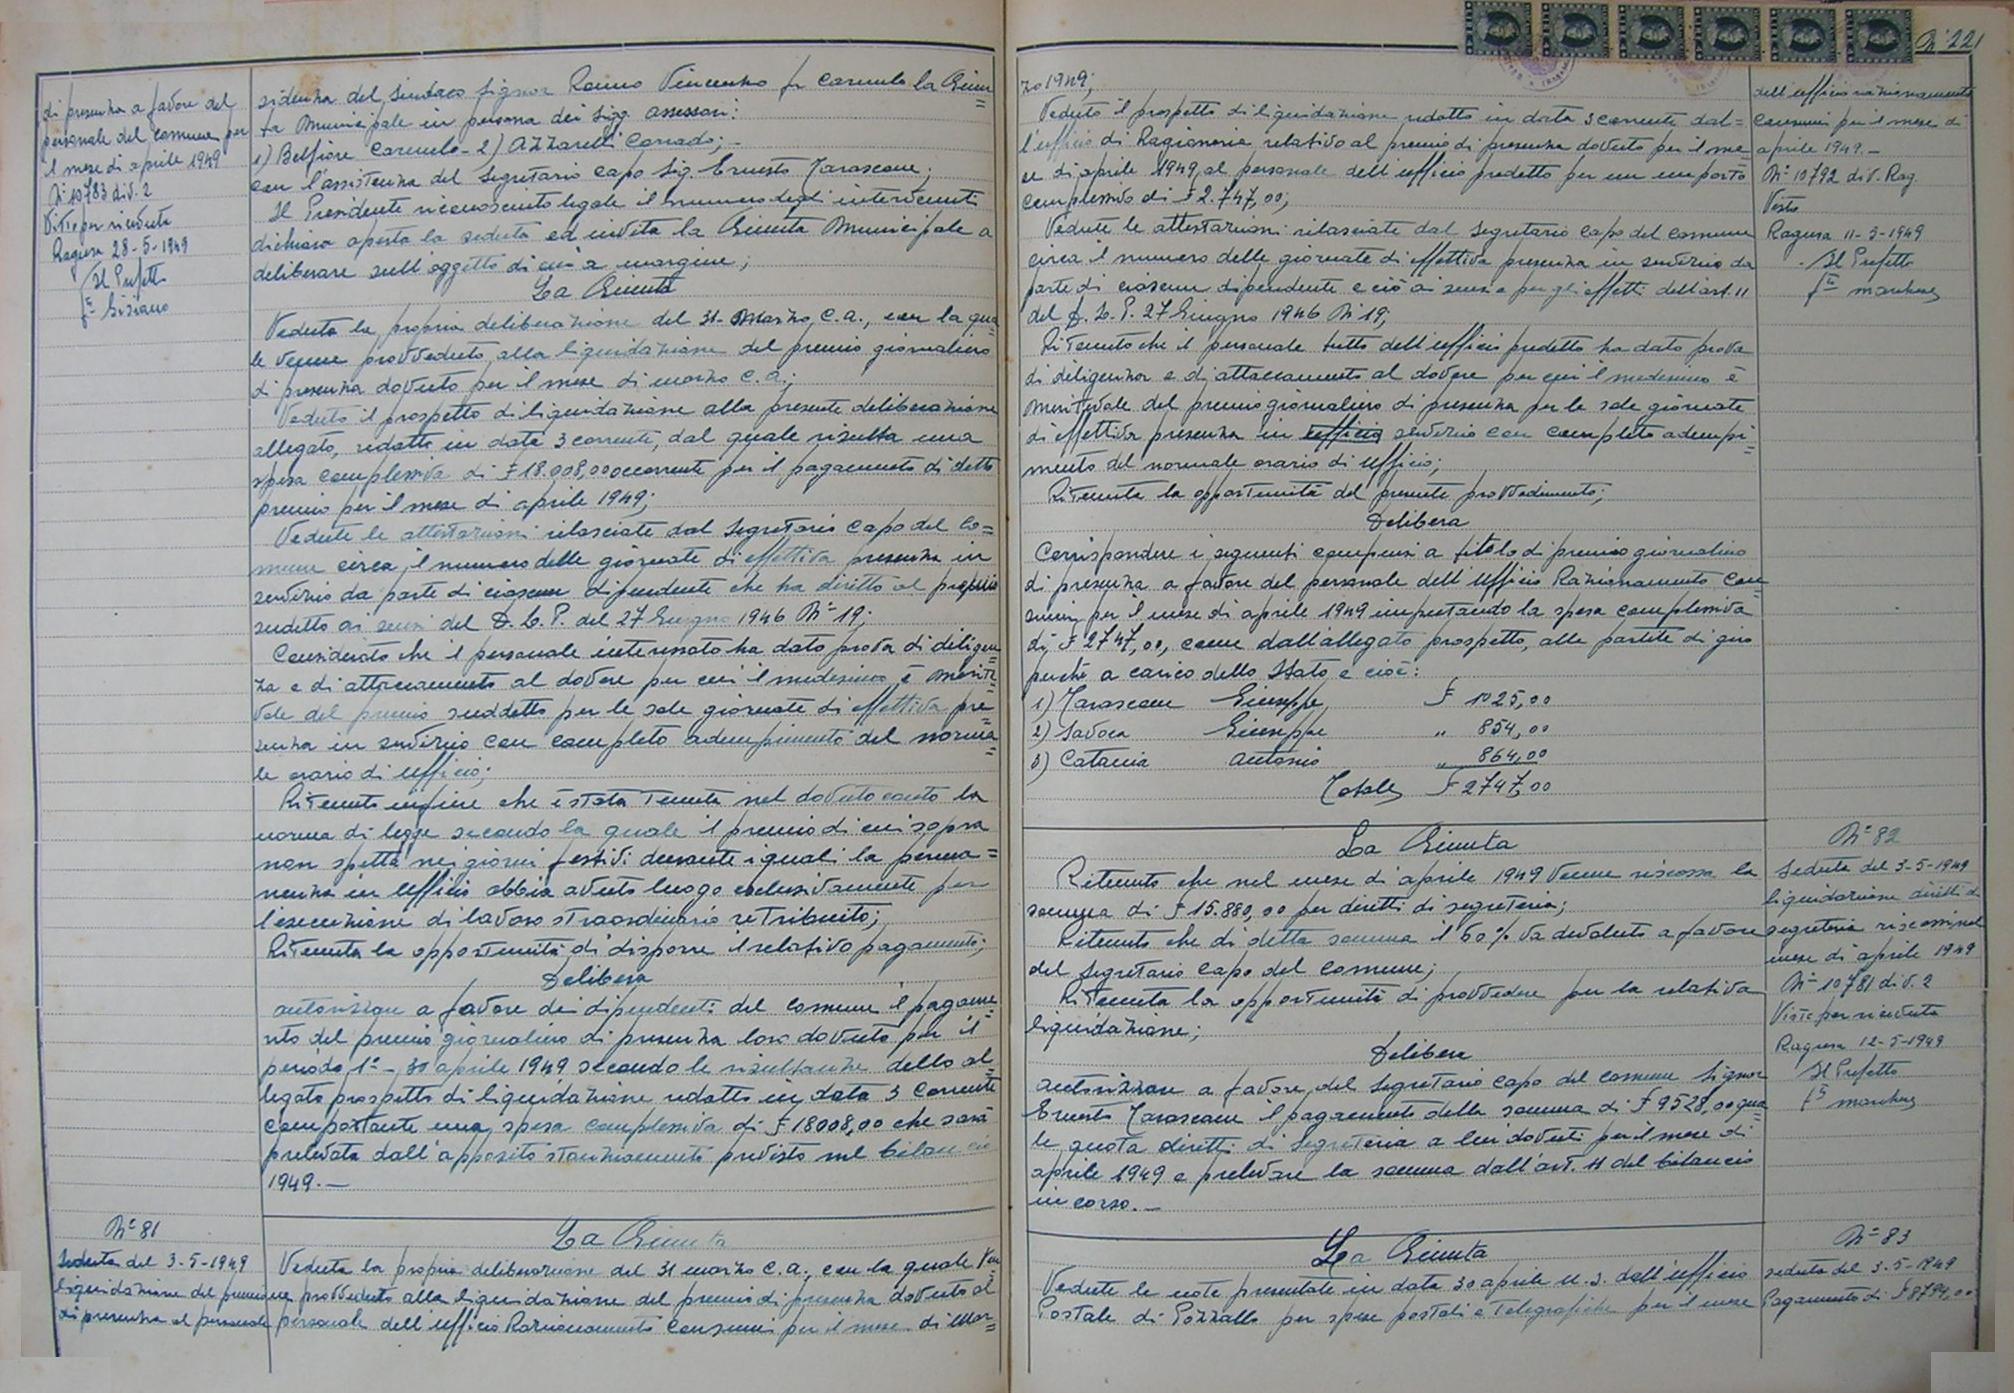 di presenza a favore del
personale del comune per
il mese di aprile 1949
N° 10783 div. 2
Visto per ricevuta
Ragusa 28-5-1949
Il Prefetto
sidenza del Sindaco Signor Vincenzo fu Carmelo la Giun=
ta Municipale in persona dei Sigg. Assessori:
1) Belfiore Carmelo - 2) Azzarelli Corrado; -
con l'assistenza del Segretario Capo Sig. Ernesto Tarascone;
Il Presidente riconosciuto legale il numero degli intervenuti
dichiara aperta la seduta ed invita la Giunta Municipale a
deliberare sull'oggetto di cui a margine;
La Giunta
Veduta la propria deliberazione del 31 Marzo c.a., con la qua=
le venne provveduto alla liquidazione del premio giornaliero
di presenza dovuto per il mese di marzo c.a.;
Veduto il prospetto di liquidazione alla presente deliberazione
allegato, redatto in data 3 corrente, dal quale risulta una
spesa complessiva di £ 18.008,00 occorrente per il pagamento di detto
premio per il mese di aprile 1949;
Vedute le attestazioni rilasciate dal Segretario Capo del Co=
mune circa il numero delle giornate di effettiva presenza in
servizio da parte di ciascun dipendente che ha diritto al premio
sudetto ai sensi del D.L.P. del 27 Giugno 1946 N° 19;
Considerato che il personale interessato ha dato prova di diligen=
za e di attaccamento al dovere per cui il medesimo è merite=
vole del premio suddetto per le sole giornate di effettiva pre=
senza in servizio con completo adempimento del norma=
le orario di ufficio;
Ritenuto infine che è stata tenuta nel dovuto conto la
norma di legge secondo la quale il premio di cui sopra
non spetta nei giorni festivi durante i quali la perma=
nenza in ufficio abbia avuto luogo esclusivamente per
l'esecuzione di lavoro straordinario retribuito;
Ritenuta la opportunità di disporre il relativo pagamento;
Delibera
autorizzare a favore dei dipendenti del comune il pagame=
nto del premio giornaliero di presenza loro dovuto per il
periodo 1° - 30 aprile 1949 secondo le risultanze dello al=
legato prospetto di liquidazione redatto in data 3 corrente
comportante una spesa complessiva di £ 18008,00 che sarà
prelevata dall'apposito stanziamento previsto nel bilancio
1949. -
N° 81
Seduta del 3-5-1949
liquidazione del premio
di presenza al personale
La Giunta
Veduta la propria deliberazione del 31 marzo c.a., con la quale ven=
ne provveduto alla liquidazione del premio di presenza dovuto al
personale dell'ufficio Razionamento Consumi per il mese di Mar=
N° 221
zo 1949;
Veduto il prospetto di liquidazione redatto in data 3 corrente dal=
l'ufficio di Ragioneria relativo al premio di presenza dovuto per il me=
se di aprile 1949 al personale dell'ufficio predetto per un importo
complessivo di £ 2.747,00;
Vedute le attestazioni rilasciate dal Segretario Capo del comune
circa il numero delle giornate di effettiva presenza in servizio da
parte di ciascun dipendente e ciò ai sensi e per gli effetti dell'art. 11
del D.L.P. 27 Giugno 1946 N° 19;
Ritenuto che il personale tutto dell'ufficio predetto ha dato prova
di diligenza e di attaccamento al dovere per cui il medesimo è
meritevole del premio giornaliero di presenza per le sole giornate
di effettiva presenza in ufficio servizio con completo adempi=
mento del normale orario di ufficio;
Ritenuta la opportunità del presente provvedimento;
Delibera
Corrispondere i seguenti compensi a titolo di premio giornaliero
di presenza a favore del personale dell'ufficio Razionamento Con=
sumi per il mese di aprile 1949 imputando la spesa complessiva
di £ 2747,00, come dall'allegato prospetto, alle partite di giro
perchè a carico dello Stato e cioè:
1) Tarascone Giuseppe £ 1025,00
2) Savoca Giuseppe " 854,00
3) Catania Antonio " 864,00
Totale £ 2747,00
La Giunta
Ritenuto che nel mese di aprile 1949 venne riscossa la
somma di £ 15.880,00 per diritti di segreteria;
Ritenuto che di detta somma il 60% va devoluto a favore
del Segretario Capo del Comune;
Ritenuta la opportunità di provvedere per la relativa
liquidazione;
Delibera
autorizzare a favore del Segretario Capo del comune Signor
Ernesto Tarascone il pagamento della somma di £ 9528,00 qua=
le quota diritti di Segreteria a lui dovuti per il mese di
aprile 1949 e prelevare la somma dall'art. 11 del bilancio
in corso. -
La Giunta
Vedute le note presentate in data 30 aprile u.s. dall'ufficio
Postale di Pozzallo per spese postali e telegrafiche per il mese
dell'ufficio razionamento
consumi per il mese di
aprile 1949. -
N° 10792 div. Rag.
Visto
Ragusa 11-5-1949
Il Prefetto
N° 82
Seduta del 3-5-1949
liquidazione diritti di
segreteria riscossi nel
mese di aprile 1949
N° 10781 div. 2
Visto per ricevuta
Ragusa 12-5-1949
Il Prefetto
N° 83
seduta del 3-5-1949
Pagamento di £ 8794,00